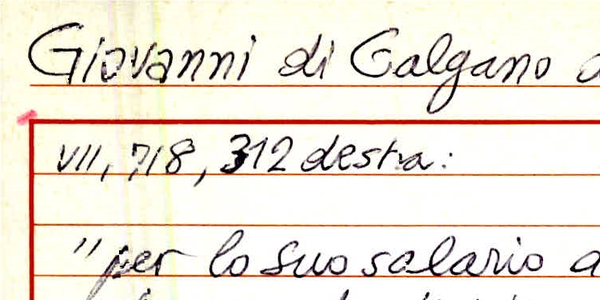 Giovanni di Galgano
VII, 718, 312 destra:
"per lo suo salario